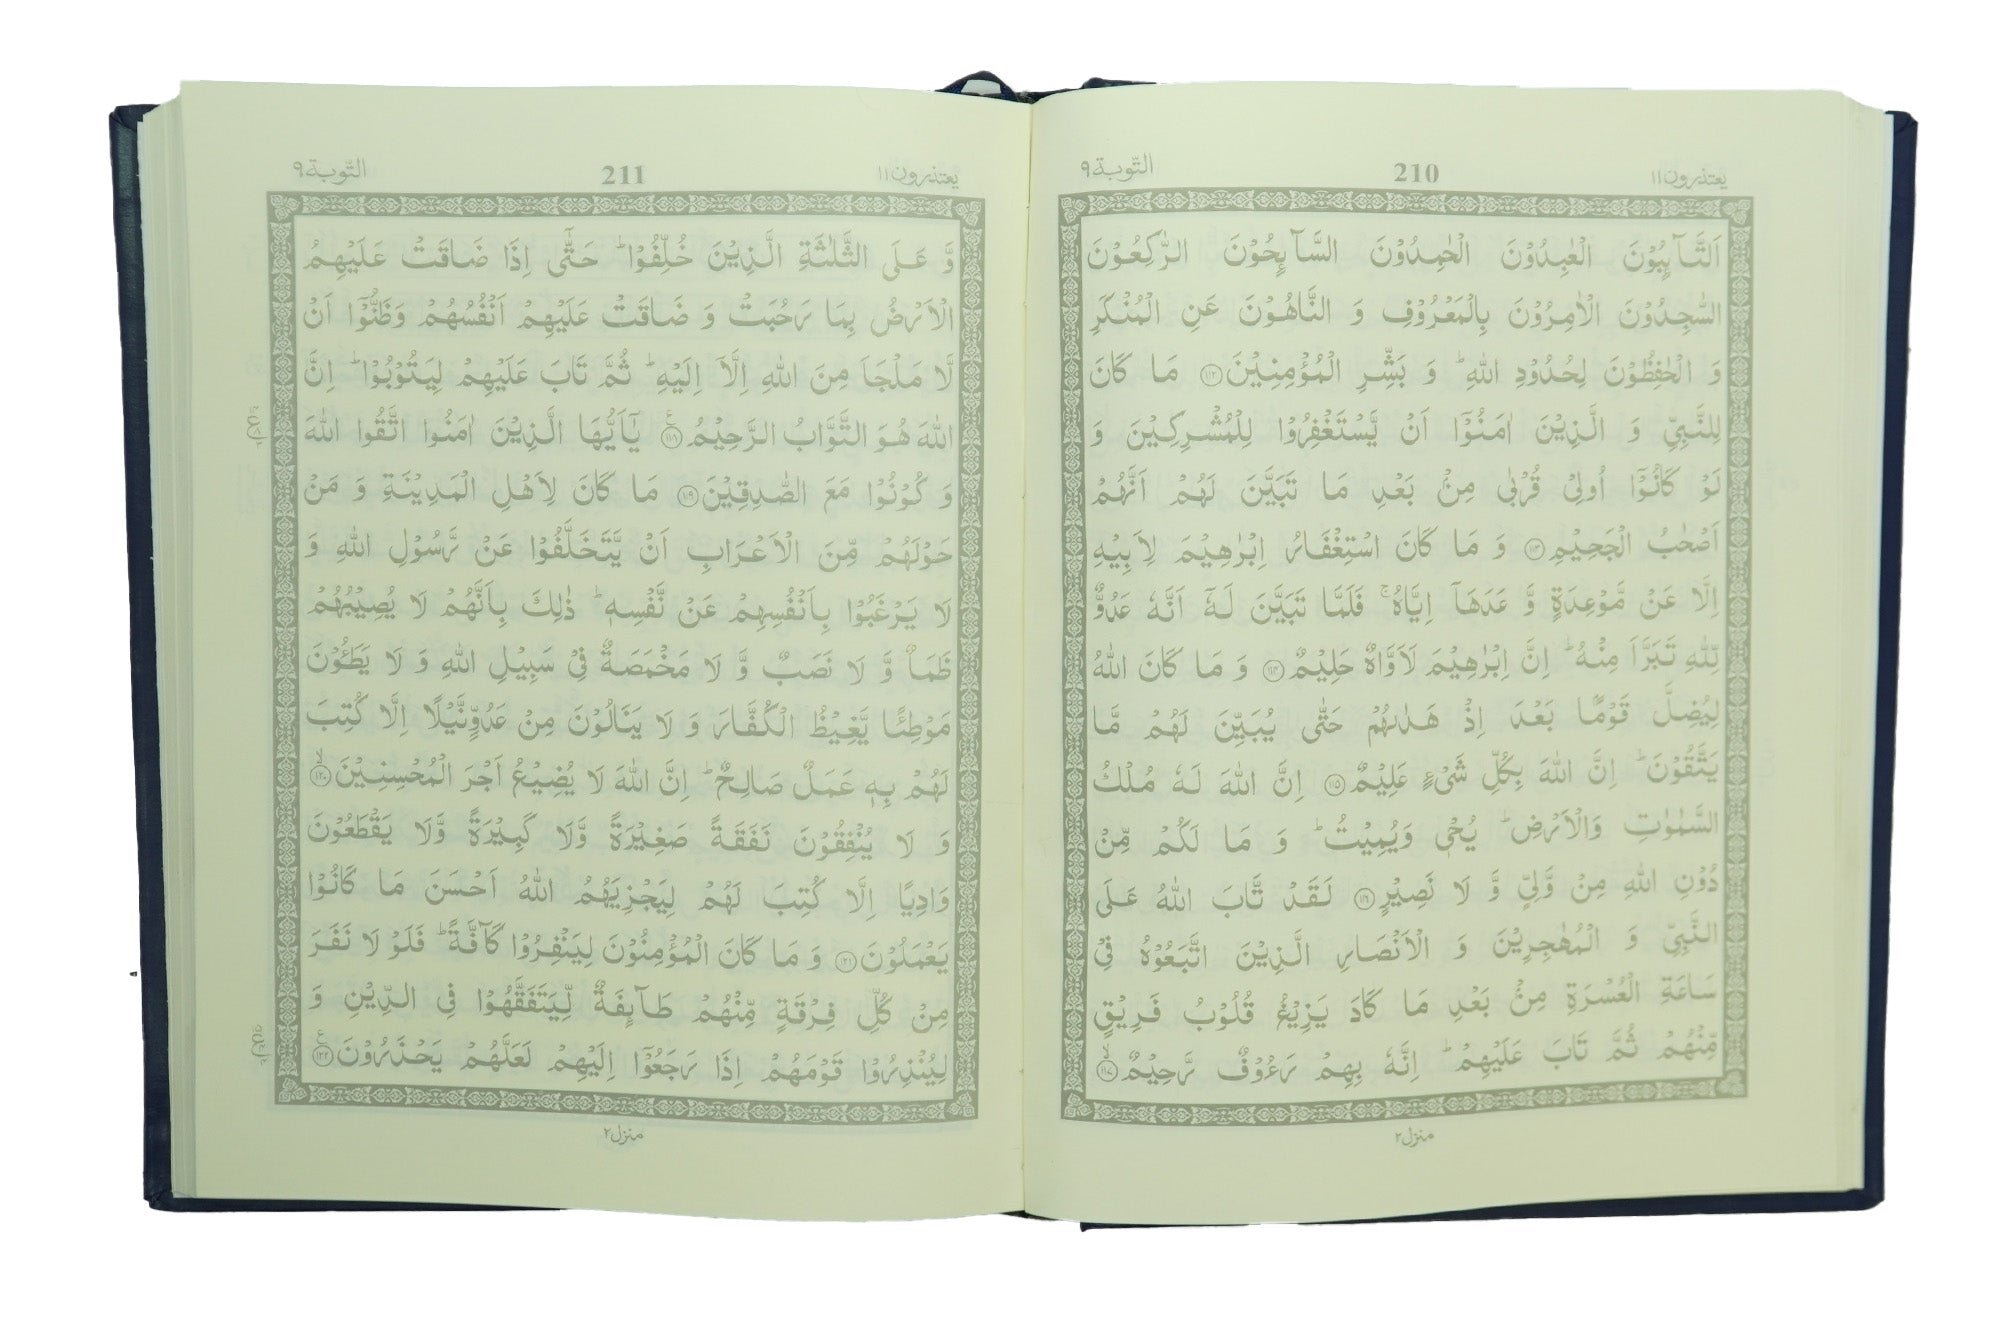 یعتذرون ۱۱
210
التّوبة ۹
اَلتَّآىِٕبُوْنَ الْعٰبِدُوْنَ الْحٰمِدُوْنَ السَّآىِٕحُوْنَ الرّٰكِعُوْنَ
السّٰجِدُوْنَ الْاٰمِرُوْنَ بِالْمَعْرُوْفِ وَ النَّاهُوْنَ عَنِ الْمُنْكَرِ
وَ الْحٰفِظُوْنَ لِحُدُوْدِ اللّٰهِؕ وَ بَشِّرِ الْمُؤْمِنِیْنَ۝۱۱۲ مَا كَانَ
لِلنَّبِیِّ وَ الَّذِیْنَ اٰمَنُوْۤا اَنْ یَّسْتَغْفِرُوْا لِلْمُشْرِكِیْنَ وَ
لَوْ كَانُوْۤا اُولِیْ قُرْبٰى مِنْۢ بَعْدِ مَا تَبَیَّنَ لَهُمْ اَنَّهُمْ
اَصْحٰبُ الْجَحِیْمِ۝۱۱۳ وَ مَا كَانَ اسْتِغْفَارُ اِبْرٰهِیْمَ لِاَبِیْهِ
اِلَّا عَنْ مَّوْعِدَةٍ وَّ عَدَهَاۤ اِیَّاهُۚ فَلَمَّا تَبَیَّنَ لَهٗۤ اَنَّهٗ عَدُوٌّ
لِّلّٰهِ تَبَرَّاَ مِنْهُؕ اِنَّ اِبْرٰهِیْمَ لَاَوَّاهٌ حَلِیْمٌ۝۱۱۴ وَ مَا كَانَ اللّٰهُ
لِیُضِلَّ قَوْمًۢا بَعْدَ اِذْ هَدٰىهُمْ حَتّٰى یُبَیِّنَ لَهُمْ مَّا
یَتَّقُوْنَؕ اِنَّ اللّٰهَ بِكُلِّ شَیْءٍ عَلِیْمٌ۝۱۱۵ اِنَّ اللّٰهَ لَهٗ مُلْكُ
السَّمٰوٰتِ وَالْاَرْضِؕ یُحْیٖ وَیُمِیْتُؕ وَ مَا لَكُمْ مِّنْ
دُوْنِ اللّٰهِ مِنْ وَّلِیٍّ وَّ لَا نَصِیْرٍ۝۱۱۶ لَقَدْ تَّابَ اللّٰهُ عَلَى
النَّبِیِّ وَ الْمُهٰجِرِیْنَ وَ الْاَنْصَارِ الَّذِیْنَ اتَّبَعُوْهُ فِیْ
سَاعَةِ الْعُسْرَةِ مِنْۢ بَعْدِ مَا كَادَ یَزِیْغُ قُلُوْبُ فَرِیْقٍ
مِّنْهُمْ ثُمَّ تَابَ عَلَیْهِمْؕ اِنَّهٗ بِهِمْ رَءُوْفٌ رَّحِیْمٌۙ۝۱۱۷
منزل ۲
یعتذرون ۱۱
211
التّوبة ۹
وَّ عَلَى الثَّلٰثَةِ الَّذِیْنَ خُلِّفُوْاؕ حَتّٰۤى اِذَا ضَاقَتْ عَلَیْهِمُ
الْاَرْضُ بِمَا رَحُبَتْ وَ ضَاقَتْ عَلَیْهِمْ اَنْفُسُهُمْ وَظَنُّوْۤا اَنْ
لَّا مَلْجَاَ مِنَ اللّٰهِ اِلَّاۤ اِلَیْهِؕ ثُمَّ تَابَ عَلَیْهِمْ لِیَتُوْبُوْاؕ اِنَّ
اللّٰهَ هُوَ التَّوَّابُ الرَّحِیْمُ۠۝۱۱۸ یٰۤاَیُّهَا الَّذِیْنَ اٰمَنُوا اتَّقُوا اللّٰهَ
وَ كُوْنُوْا مَعَ الصّٰدِقِیْنَ۝۱۱۹ مَا كَانَ لِاَهْلِ الْمَدِیْنَةِ وَ مَنْ
حَوْلَهُمْ مِّنَ الْاَعْرَابِ اَنْ یَّتَخَلَّفُوْا عَنْ رَّسُوْلِ اللّٰهِ وَ
لَا یَرْغَبُوْا بِاَنْفُسِهِمْ عَنْ نَّفْسِهٖؕ ذٰلِكَ بِاَنَّهُمْ لَا یُصِیْبُهُمْ
ظَمَاٌ وَّ لَا نَصَبٌ وَّ لَا مَخْمَصَةٌ فِیْ سَبِیْلِ اللّٰهِ وَ لَا یَطَـُٔوْنَ
مَوْطِئًا یَّغِیْظُ الْكُفَّارَ وَ لَا یَنَالُوْنَ مِنْ عَدُوٍّنَّیْلًا اِلَّا كُتِبَ
لَهُمْ بِهٖ عَمَلٌ صَالِحٌؕ اِنَّ اللّٰهَ لَا یُضِیْعُ اَجْرَ الْمُحْسِنِیْنَۙ۝۱۲۰
وَ لَا یُنْفِقُوْنَ نَفَقَةً صَغِیْرَةً وَّلَا كَبِیْرَةً وَّلَا یَقْطَعُوْنَ
وَادِیًا اِلَّا كُتِبَ لَهُمْ لِیَجْزِیَهُمُ اللّٰهُ اَحْسَنَ مَا كَانُوْا
یَعْمَلُوْنَ۝۱۲۱ وَ مَا كَانَ الْمُؤْمِنُوْنَ لِیَنْفِرُوْا كَآفَّةًؕ فَلَوْ لَا نَفَرَ
مِنْ كُلِّ فِرْقَةٍ مِّنْهُمْ طَآىِٕفَةٌ لِّیَتَفَقَّهُوْا فِی الدِّیْنِ وَ
لِیُنْذِرُوْا قَوْمَهُمْ اِذَا رَجَعُوْۤا اِلَیْهِمْ لَعَلَّهُمْ یَحْذَرُوْنَ۠۝۱۲۲
منزل ۲